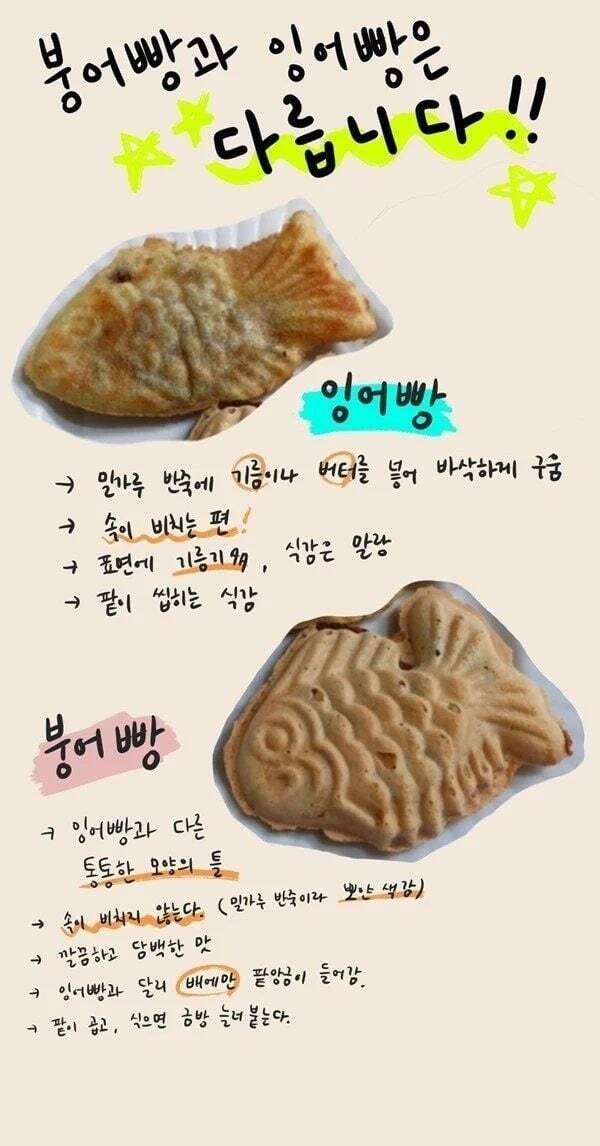 붕어빵과 잉어빵은
다릅니다!!
잉어빵
→ 밀가루 반죽에 기름이나 버터를 넣어 바삭하게 구움
→ 속이 비치는 편!
→ 표면에 기름기 有, 식감은 말랑
→ 팥이 씹히는 식감
붕어빵
→ 잉어빵과 다른
통통한 모양의 틀
→ 속이 비치지 않는다. (밀가루 반죽이라 뽀얀 색감)
→ 깔끔하고 담백한 맛
→ 잉어빵과 달리 배에만 팥앙금이 들어감.
→ 팥이 곱고, 식으면 금방 눌러붙는다.